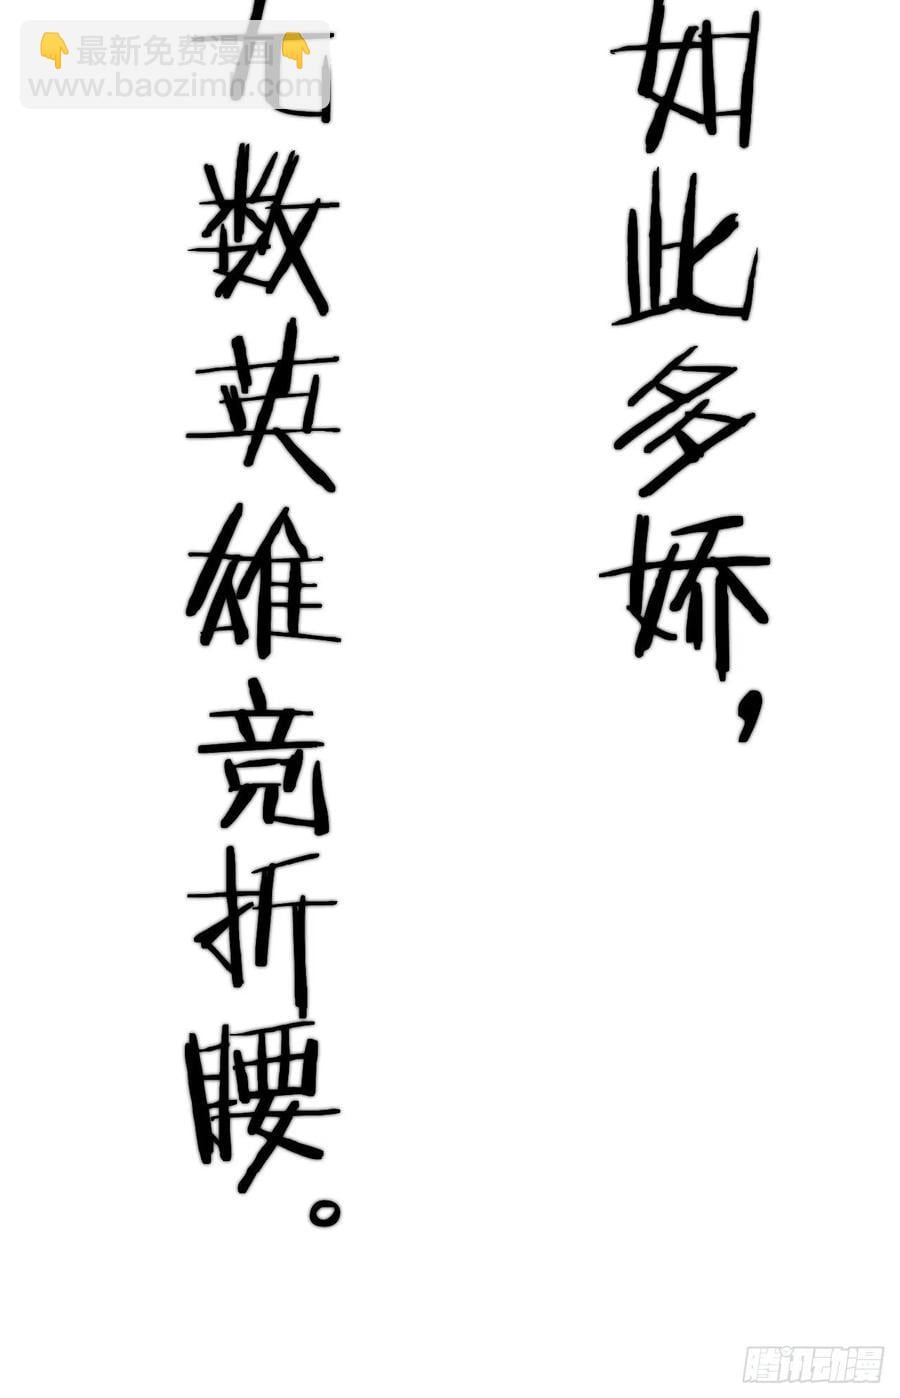 👇最新免费漫画👇
www.baozimh.com
如此多娇，
无数英雄竞折腰。
腾讯动漫